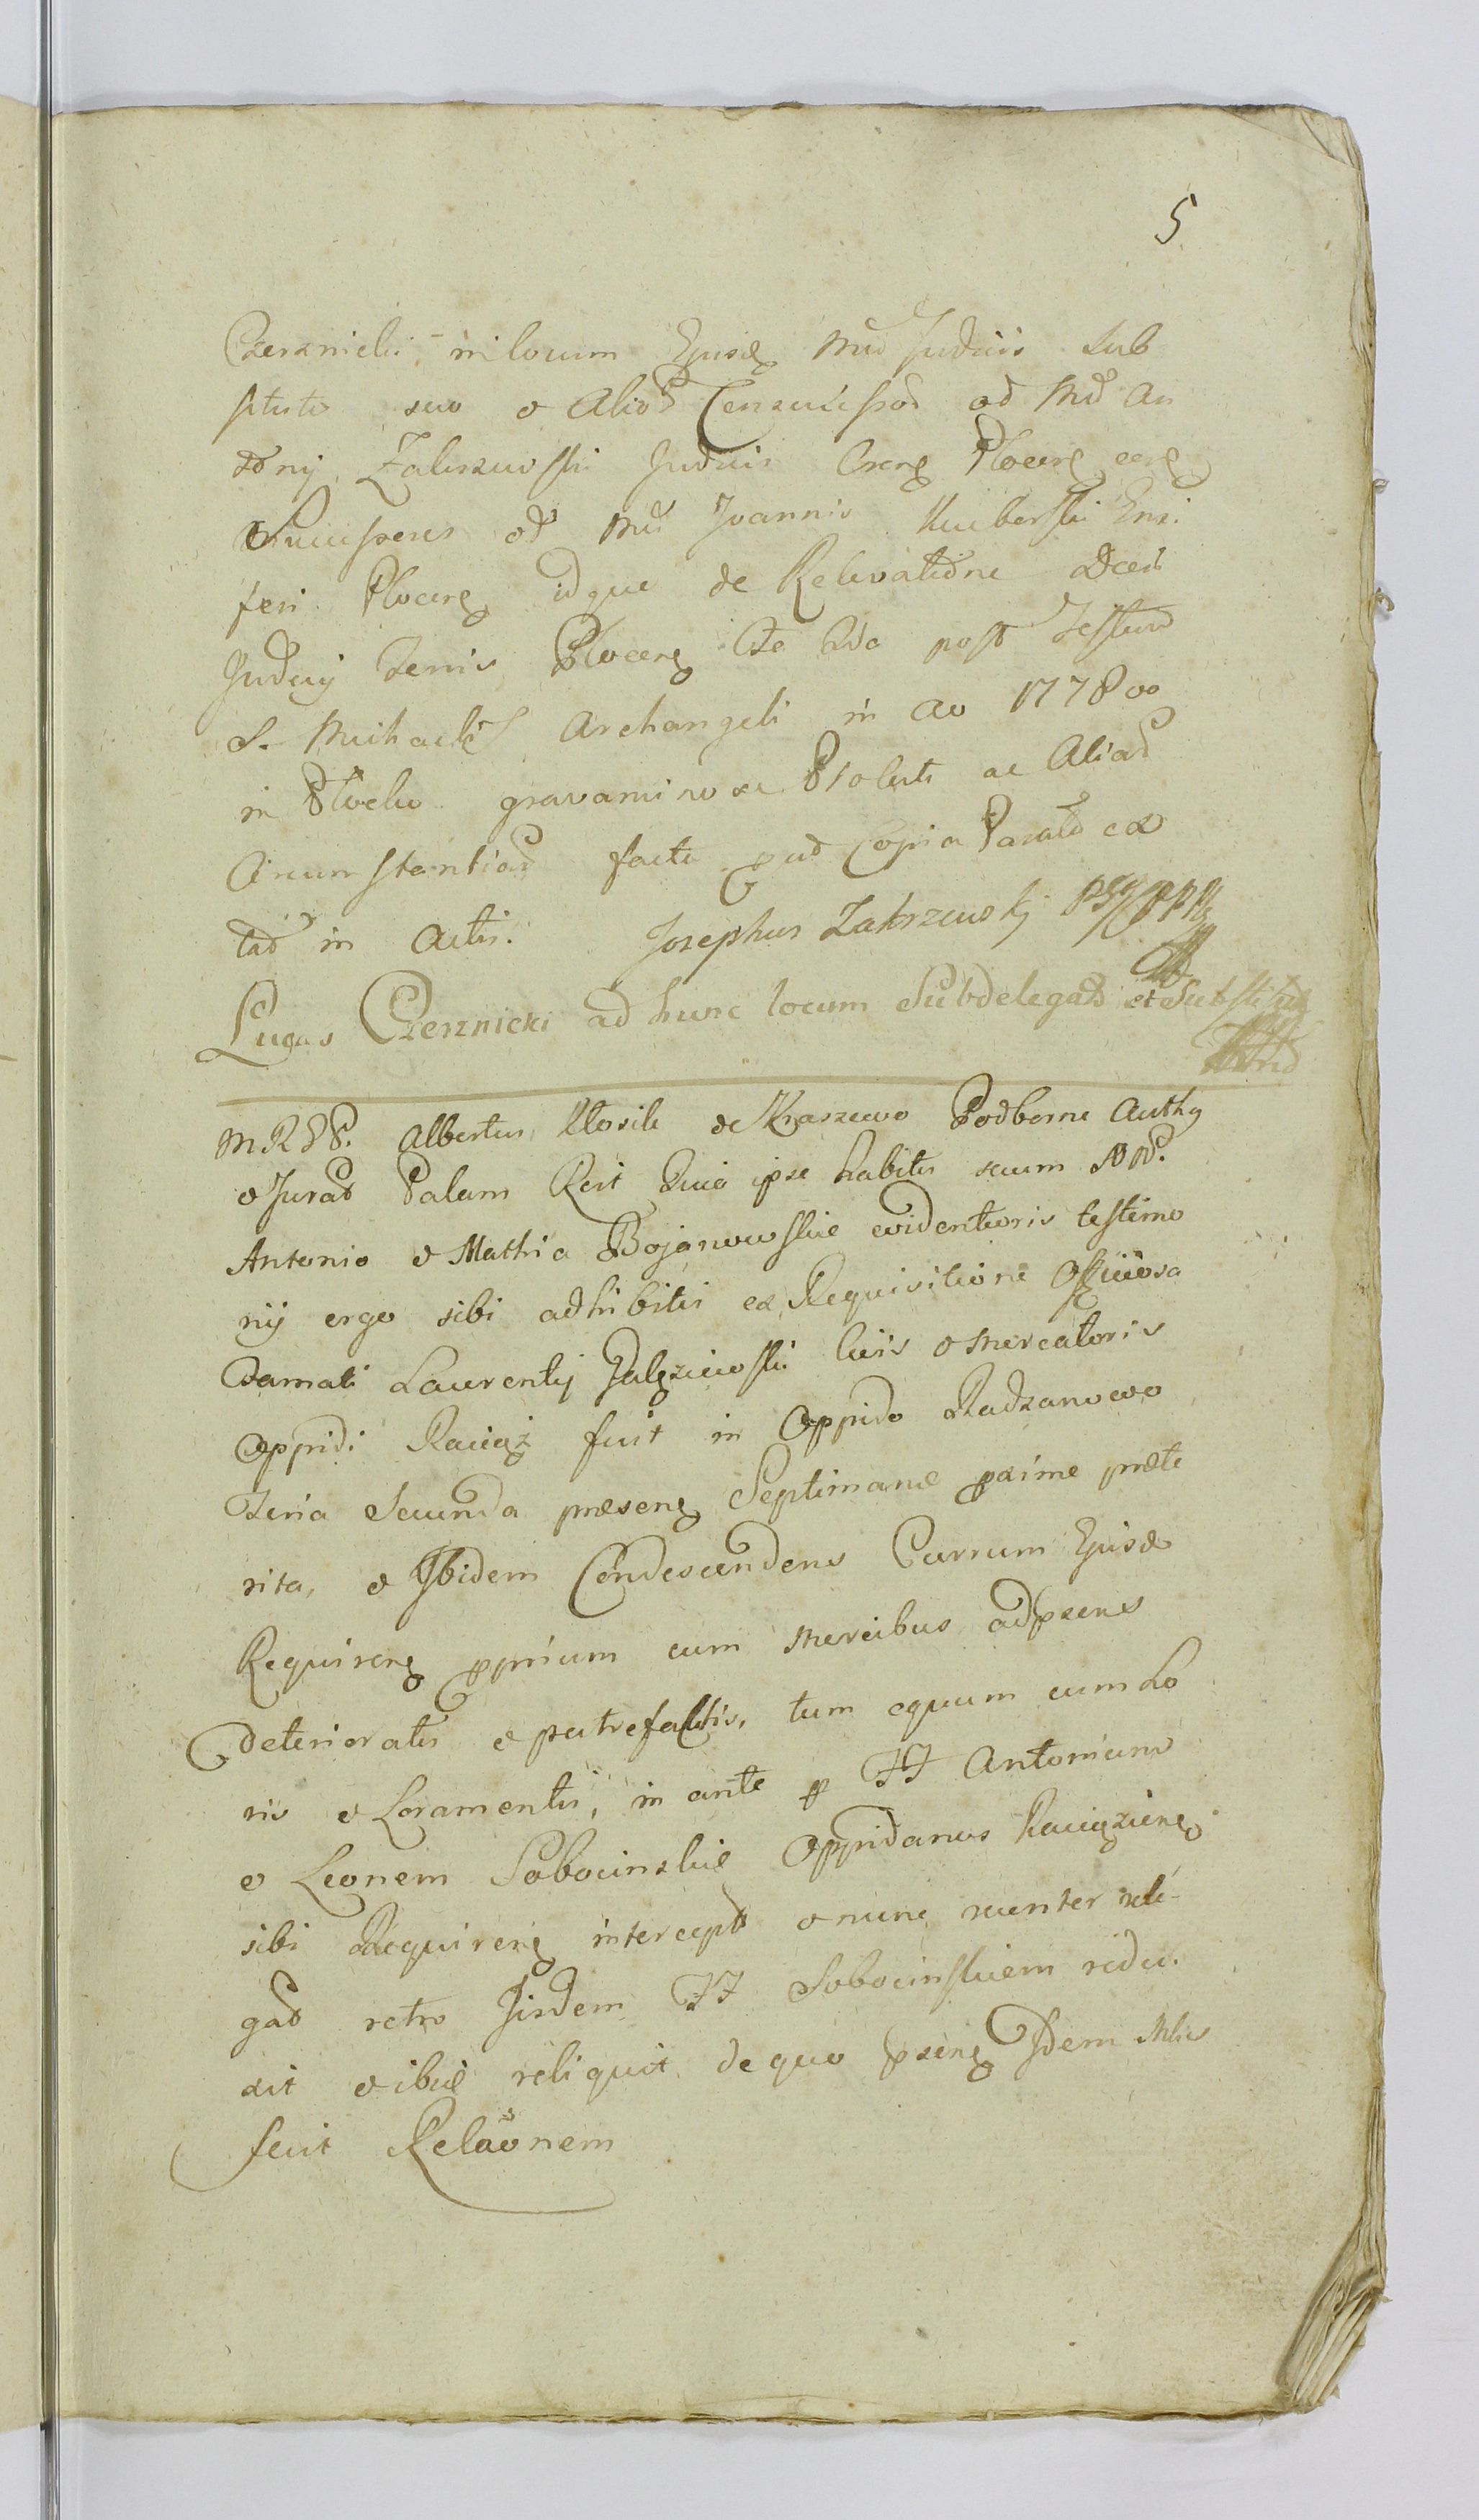 5
Czersnicki in locum Ejusd Mci Judicis Sub
stituto suo et Aliod Censuissod od Mcd An
tonij Zaluszewski Judicis Crens Plocens
Successores od Mcd Joannis Kuiberski Ensi
feri Plocens idque de Relevatione Dcti
Judicij Terris Plocens fe 2da post Festum
S. Michaelis Archangeli in Ao 1778vo
in Plocko gravaminose Prolati ac Aliad
Circumstantiad facti pud Copia Parata
tad in Actis. Josephus Zakrzewski
Lucas Czersnicki ad hunc locum Subdelegatd et Substitutd
M R D P. Albertus Klosik de Kraszewo Podborne Auth
et Jurat Palam Rcit Quia ipse habitis secum NN.
Antonio et Mathia Bojanowskie evidentioris testimo
nij ergo sibi adhibitis ex Requisitione Officiosa
Famati Laurentij civis et Mercatoris
Oppidi Raciąż fuit in Oppido Radzanowo
Feria Secunda præsens Septimanæ pxime præte
rita, et Ibidem Condescendens Currum Ejusd
Requirens pprium cum Mercibus adpsens
deterioratis et putrefactis, tum equum cum Lo
ris et Loramentis, in ante p FF Antonium
et Leonem Sobocinskie Oppidanos Raciążiens
sibi Requirens intercept et nunc scienter relé-
gat retro Jisdem FF Sobocinskiem redu.
xit et ibid reliquit, de quo psens Idem Mlis
fecit Relaonem